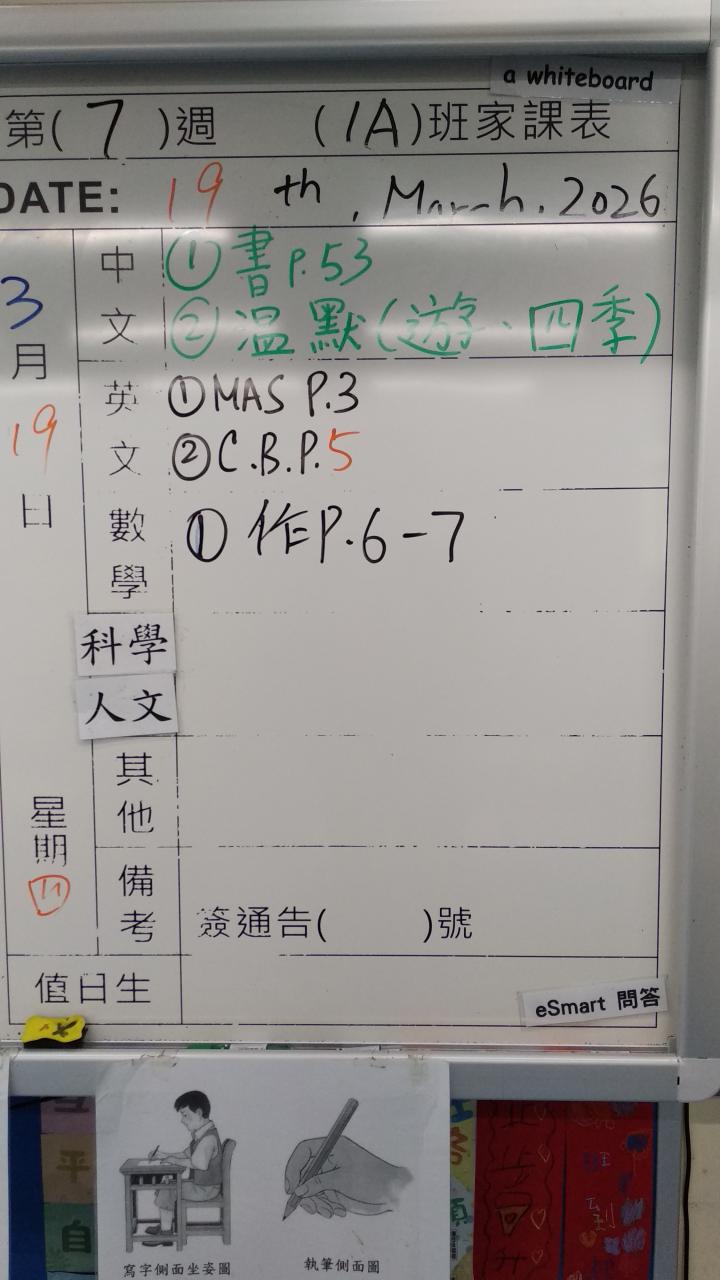 a whiteboard
第( 7 )週 (1A)班家課表
DATE: 19 th, March, 2026
3月19日 星期四
中文 ①書P.53
②温默(遊、四季)
英文 ①MAS P.3
②C.B.P.5
數學 ①作P.6-7
科學
人文
其他
備考 簽通告( )號
值日生
eSmart 問答
平
自
寫字側面坐姿圖 執筆側面圖